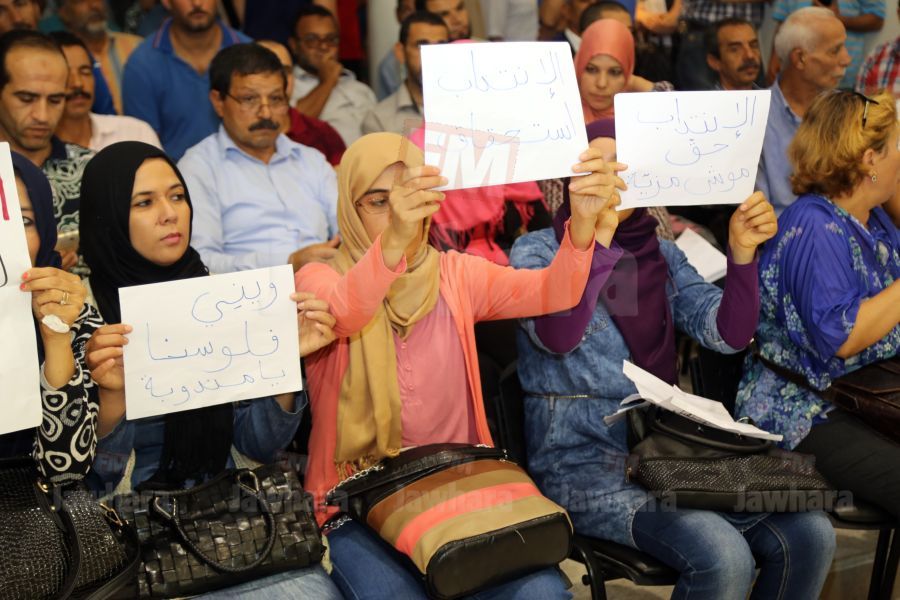 الإنتداب
استحقاق
الإنتداب
حق
موش مزيّة
ويني
فلوسنا
يا مندوبة
FM
Jawhara
Jawhara
Jawhara